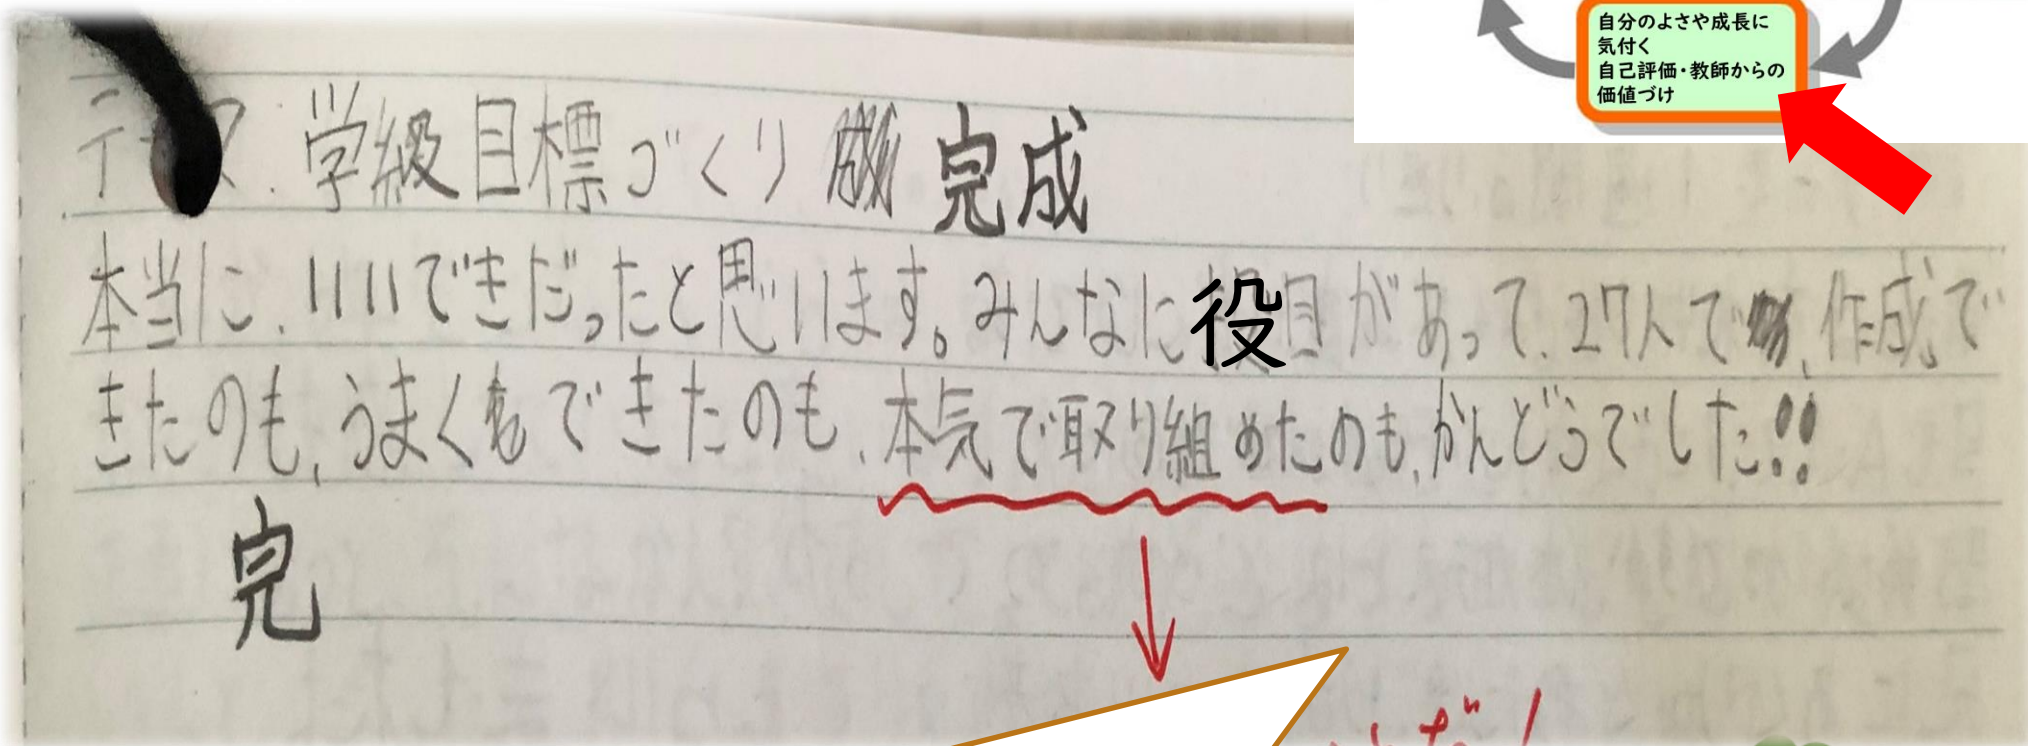 自分のよさや成長に
気付く
自己評価・教師からの
価値づけ
学級目標づくり 完成
本当に、いいできだったと思います。みんなに役目があって、27人で、作成で
きたのも、うまくもできたのも、本気で取り組めたのも、かんどうでした!!
完